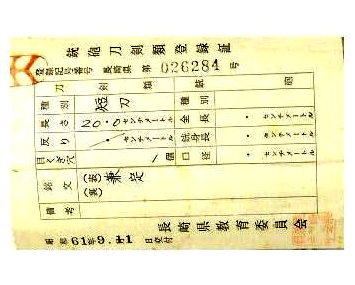 銃砲刀剣類登録証
登録記号番号 長崎県 第 026284 号
刀剣類 銃砲
種別 短刀 種別
長さ 20.0 センチメートル 全長 . センチメートル
反り . センチメートル 銃身長 . センチメートル
目くぎ穴 1 個 口径 . センチメートル
銘文 (表) 兼定
(裏)
備考
長崎県教育委員会
昭和 61年 9.11 日交付